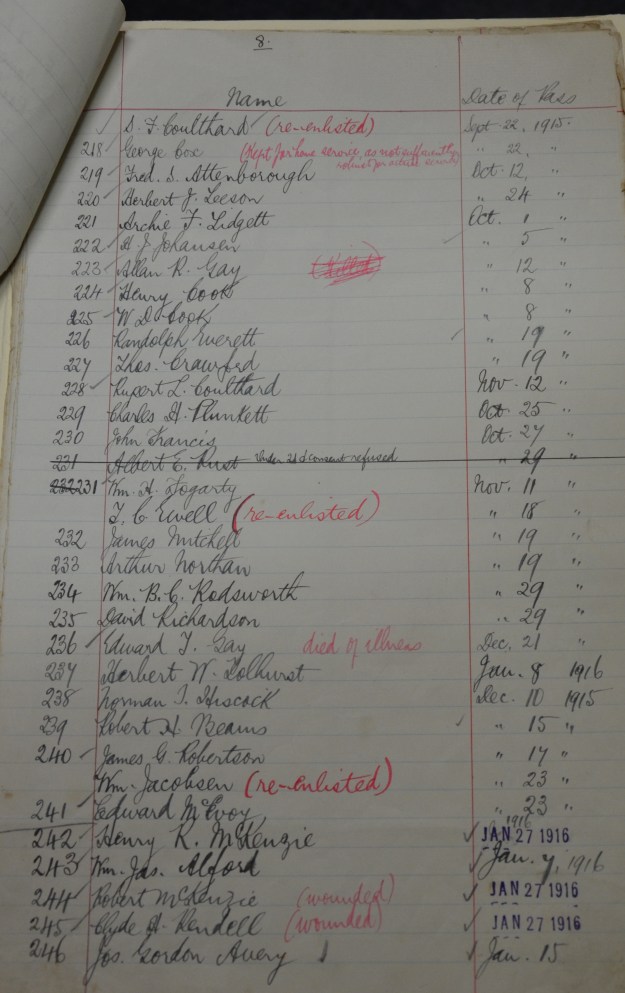 8.
Name Date of Pass
✓ S. F. Coulthard (re-enlisted) Sept 22, 1915.
218 George Cox (Kept for home service, as not sufficiently robust for active service) " 22, "
219 Fred. S. Attenborough Oct. 12, "
220 Herbert J. Leeson " 24 "
221 Archie F. Lidgett Oct. 1 "
222 H. J. Johansen ✓ " 5 "
223 Allan R. Gay (Killed) " 12 "
224 Henry Cook " 8 "
225 W. D. Cook " 8 "
226 Randolph Everett ✓ " 19 "
227 Thos. Crawford " 19 "
228 Rupert L. Coulthard Nov. 12 "
229 Charles H. Plunkett Oct 25 "
230 John Francis Oct. 27 "
231 Albert E. Rust Under 21 & consent refused " 29 "
232 231 Wm. H. Fogarty Nov. 11 "
T. C. Ewell (re-enlisted) " 18 "
232 James Mitchell " 19 "
233 Arthur Northan " 19 "
234 Wm. B. C. Rodsworth " 29 "
235 David Richardson " 29 "
236 Edward T. Gay died of illness Dec. 21 "
237 Herbert W. Dolhurst Jan. 8 1916
238 Norman T. Hiscock Dec. 10 1915
239 Robert H. Beams ✓ " 15 "
240 James G. Robertson " 17 "
Wm. Jacobsen (re-enlisted) " 23 "
241 Edward McEvoy " 23 "
1916
242 Henry R. McKenzie ✓ JAN 27 1916
243 Wm. Jas. Alford ✓ Jan. 7, 1916
244 Robert McKenzie (wounded) ✓ JAN 27 1916
245 Clyde H. Rendell (wounded) ✓ JAN 27 1916
246 Jos. Gordon Avery ✓ Jan. 15